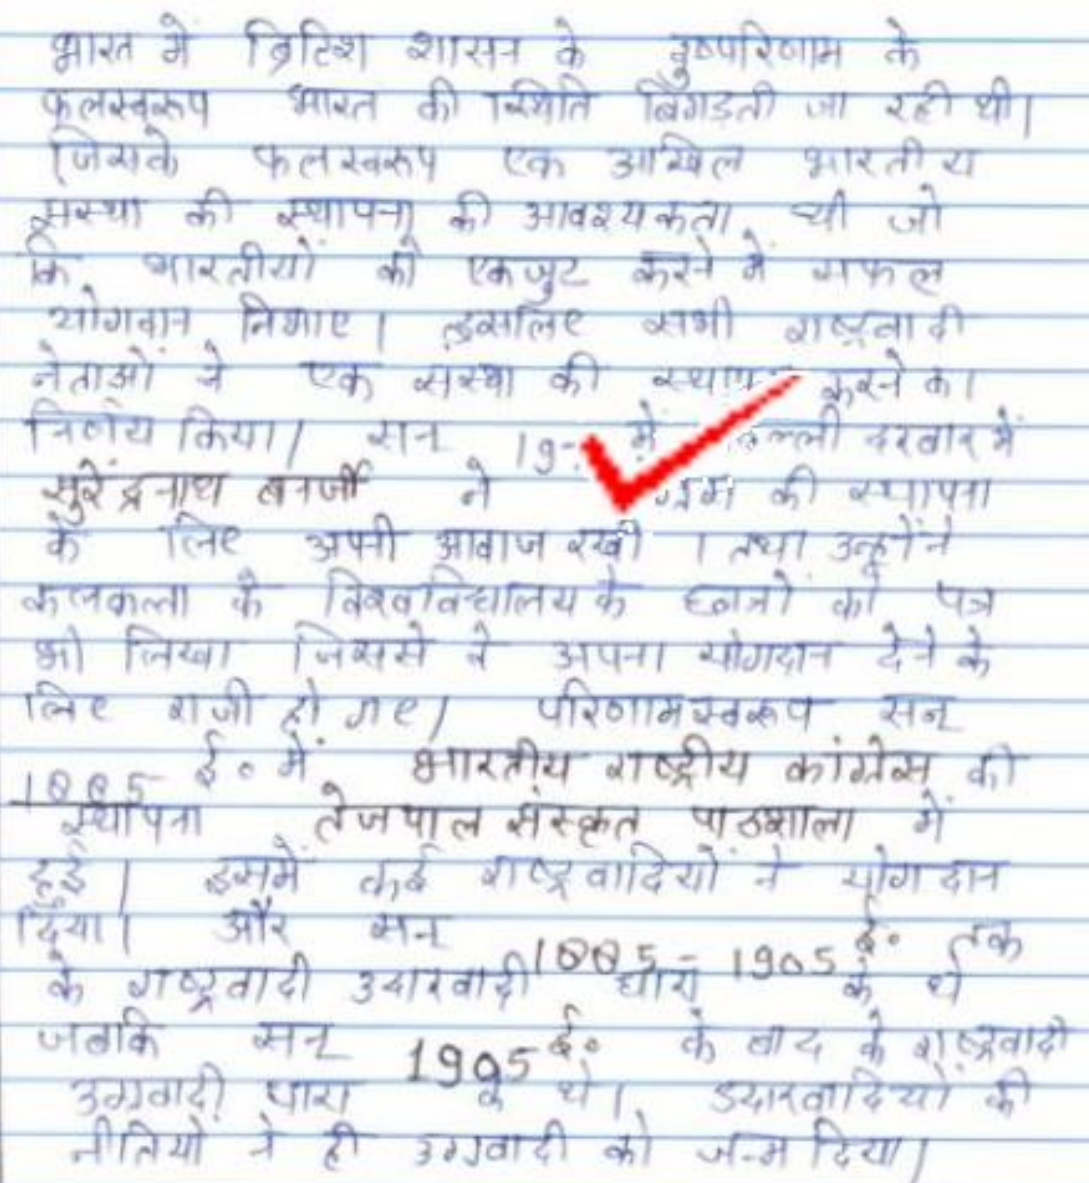 भारत में ब्रिटिश शासन के दुष्परिणाम के
फलस्वरूप भारत की स्थिति बिगड़ती जा रही थी।
जिसके फलस्वरूप एक अखिल भारतीय
संस्था की स्थापना की आवश्यकता थी जो
कि भारतीयों को एकजुट करने में सफल
योगदान निभाए। इसलिए सभी राष्ट्रवादी
नेताओं ने एक संस्था की करने का
निर्णय किया। सन् में दरबार में
सुरेंद्रनाथ बनर्जी ने की स्थापना
के लिए अपनी आवाज रखी। तथा उन्होंने
कलकत्ता के विश्वविद्यालय के छात्रों को पत्र
भी लिखा जिससे वे अपना योगदान देने के
लिए राजी हो गए। परिणामस्वरूप सन्
1885 ई० में भारतीय राष्ट्रीय कांग्रेस की
स्थापना तेजपाल संस्कृत पाठशाला में
हुई। इसमें कई राष्ट्रवादियों ने योगदान
दिया। और सन् 1885-1905 ई० तक
के राष्ट्रवादी उदारवादी धारा के थे
जबकि सन् 1905 ई० के बाद के राष्ट्रवादी
उग्रवादी धारा के थे। उदारवादियों की
नीतियों ने ही उग्रवादी को जन्म दिया।